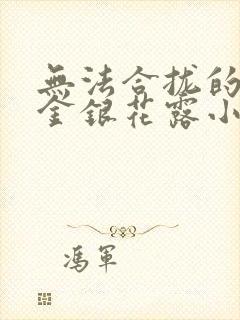 無法合拢的
金銀花露小
馮軍